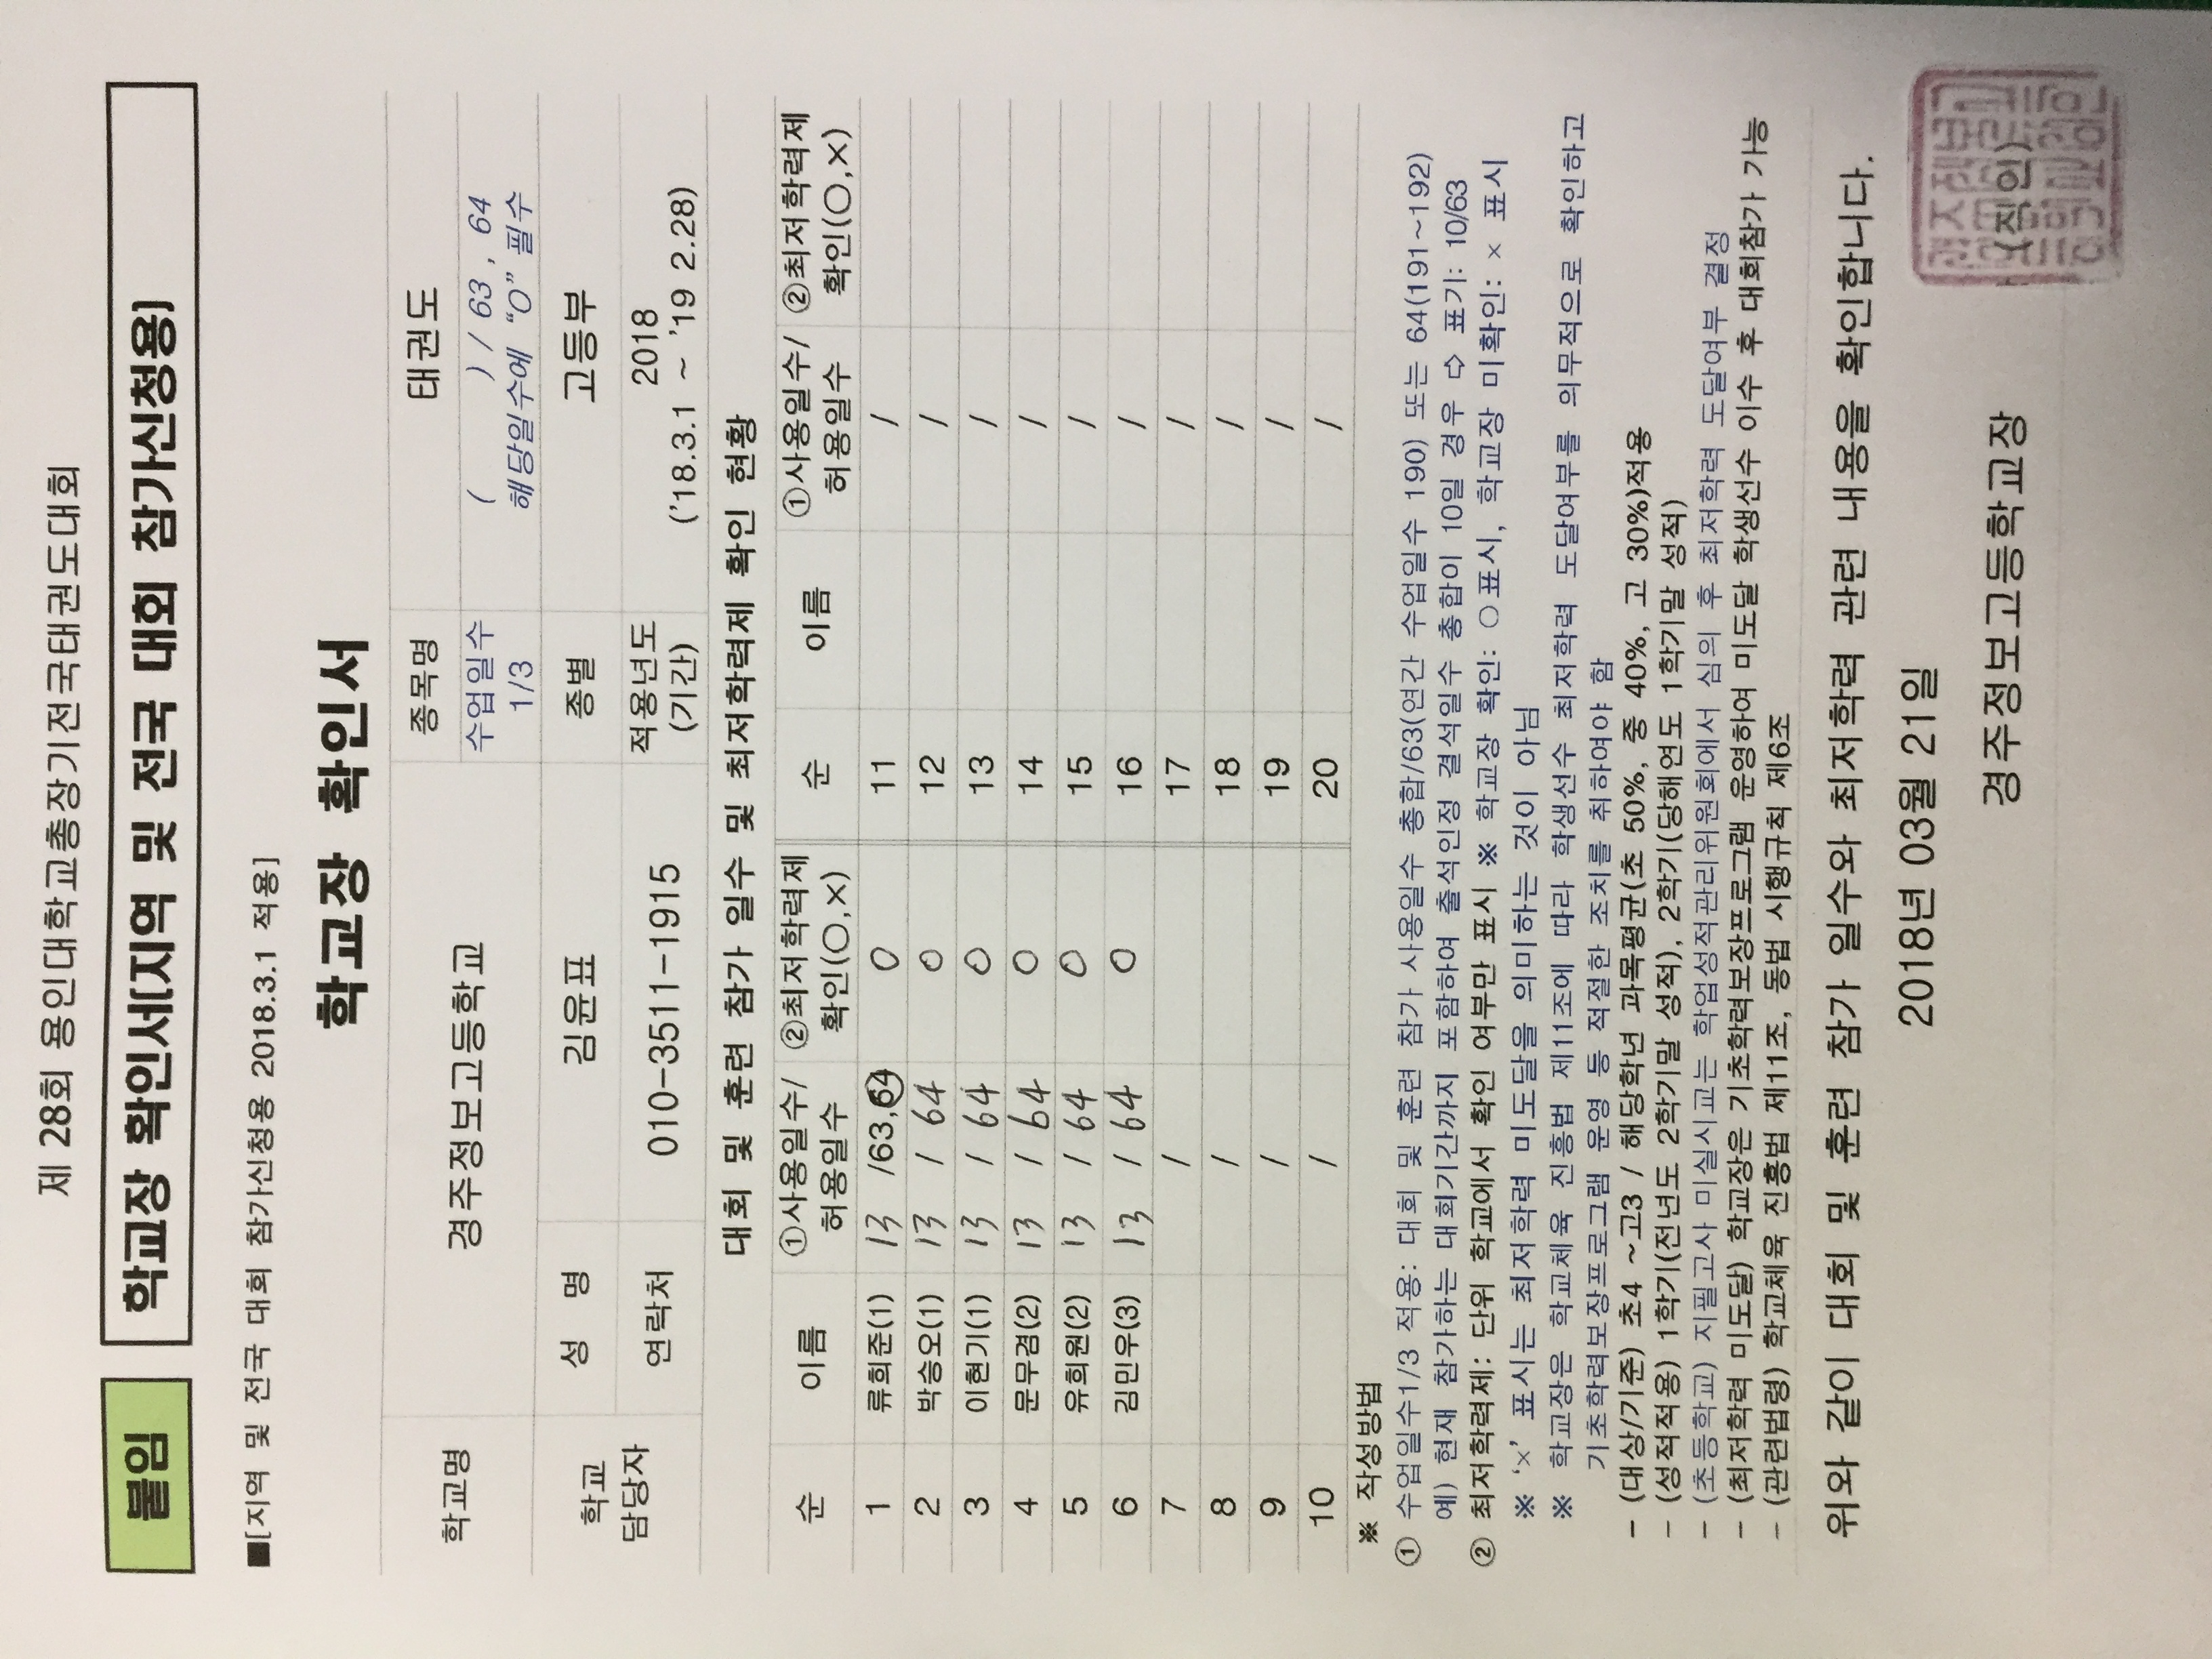 제 28회 용인대학교총장기전국태권도대회
붙임 학교장 확인서[지역 및 전국 대회 참가신청용]
■[지역 및 전국 대회 참가신청용 2018.3.1 적용]
학교장 확인서
학교명 경주정보고등학교 종목명 태권도
수업일수 1/3 ( ) / 63 , 64
해당일수에 “O” 필수
학교 담당자 성 명 김윤표 종별 고등부
연락처 010-3511-1915 적용년도 (기간) 2018
('18.3.1 ~ '19 2.28)
대회 및 훈련 참가 일수 및 최저학력제 확인 현황
순 이름 ①사용일수/허용일수 ②최저학력제 확인(○,×) 순 이름 ①사용일수/허용일수 ②최저학력제 확인(○,×)
1 류희준(1) 13 /63,64 O 11 /
2 박승오(1) 13 / 64 O 12 /
3 이현기(1) 13 / 64 O 13 /
4 문무겸(2) 13 / 64 O 14 /
5 유희원(2) 13 / 64 O 15 /
6 김민우(3) 13 / 64 O 16 /
7 / 17 /
8 / 18 /
9 / 19 /
10 / 20 /
※ 작성방법
① 수업일수1/3 적용: 대회 및 훈련 참가 사용일수 총합/63(연간 수업일수 190) 또는 64(191~192)
예) 현재 참가하는 대회기간까지 포함하여 출석인정 결석일수 총합이 10일 경우 ⇨ 표기: 10/63
② 최저학력제: 단위 학교에서 확인 여부만 표시 ※ 학교장 확인: ○표시, 학교장 미확인: × 표시
※ ‘×’ 표시는 최저학력 미도달을 의미하는 것이 아님
※ 학교장은 학교체육 진흥법 제11조에 따라 학생선수 최저학력 도달여부를 의무적으로 확인하고
기초학력보장프로그램 운영 등 적절한 조치를 취하여야 함
- (대상/기준) 초4 ~고3 / 해당학년 과목평균(초 50%, 중 40%, 고 30%)적용
- (성적적용) 1학기(전년도 2학기말 성적), 2학기(당해연도 1학기말 성적)
- (초등학교) 지필고사 미실시교는 학업성적관리위원회에서 심의 후 최저학력 도달여부 결정
- (최저학력 미도달) 학교장은 기초학력보장프로그램 운영하여 미도달 학생선수 이수 후 대회참가 가능
- (관련법령) 학교체육 진흥법 제11조, 동법 시행규칙 제6조
위와 같이 대회 및 훈련 참가 일수와 최저학력 관련 내용을 확인합니다.
2018년 03월 21일
경주정보고등학교장 (직인)